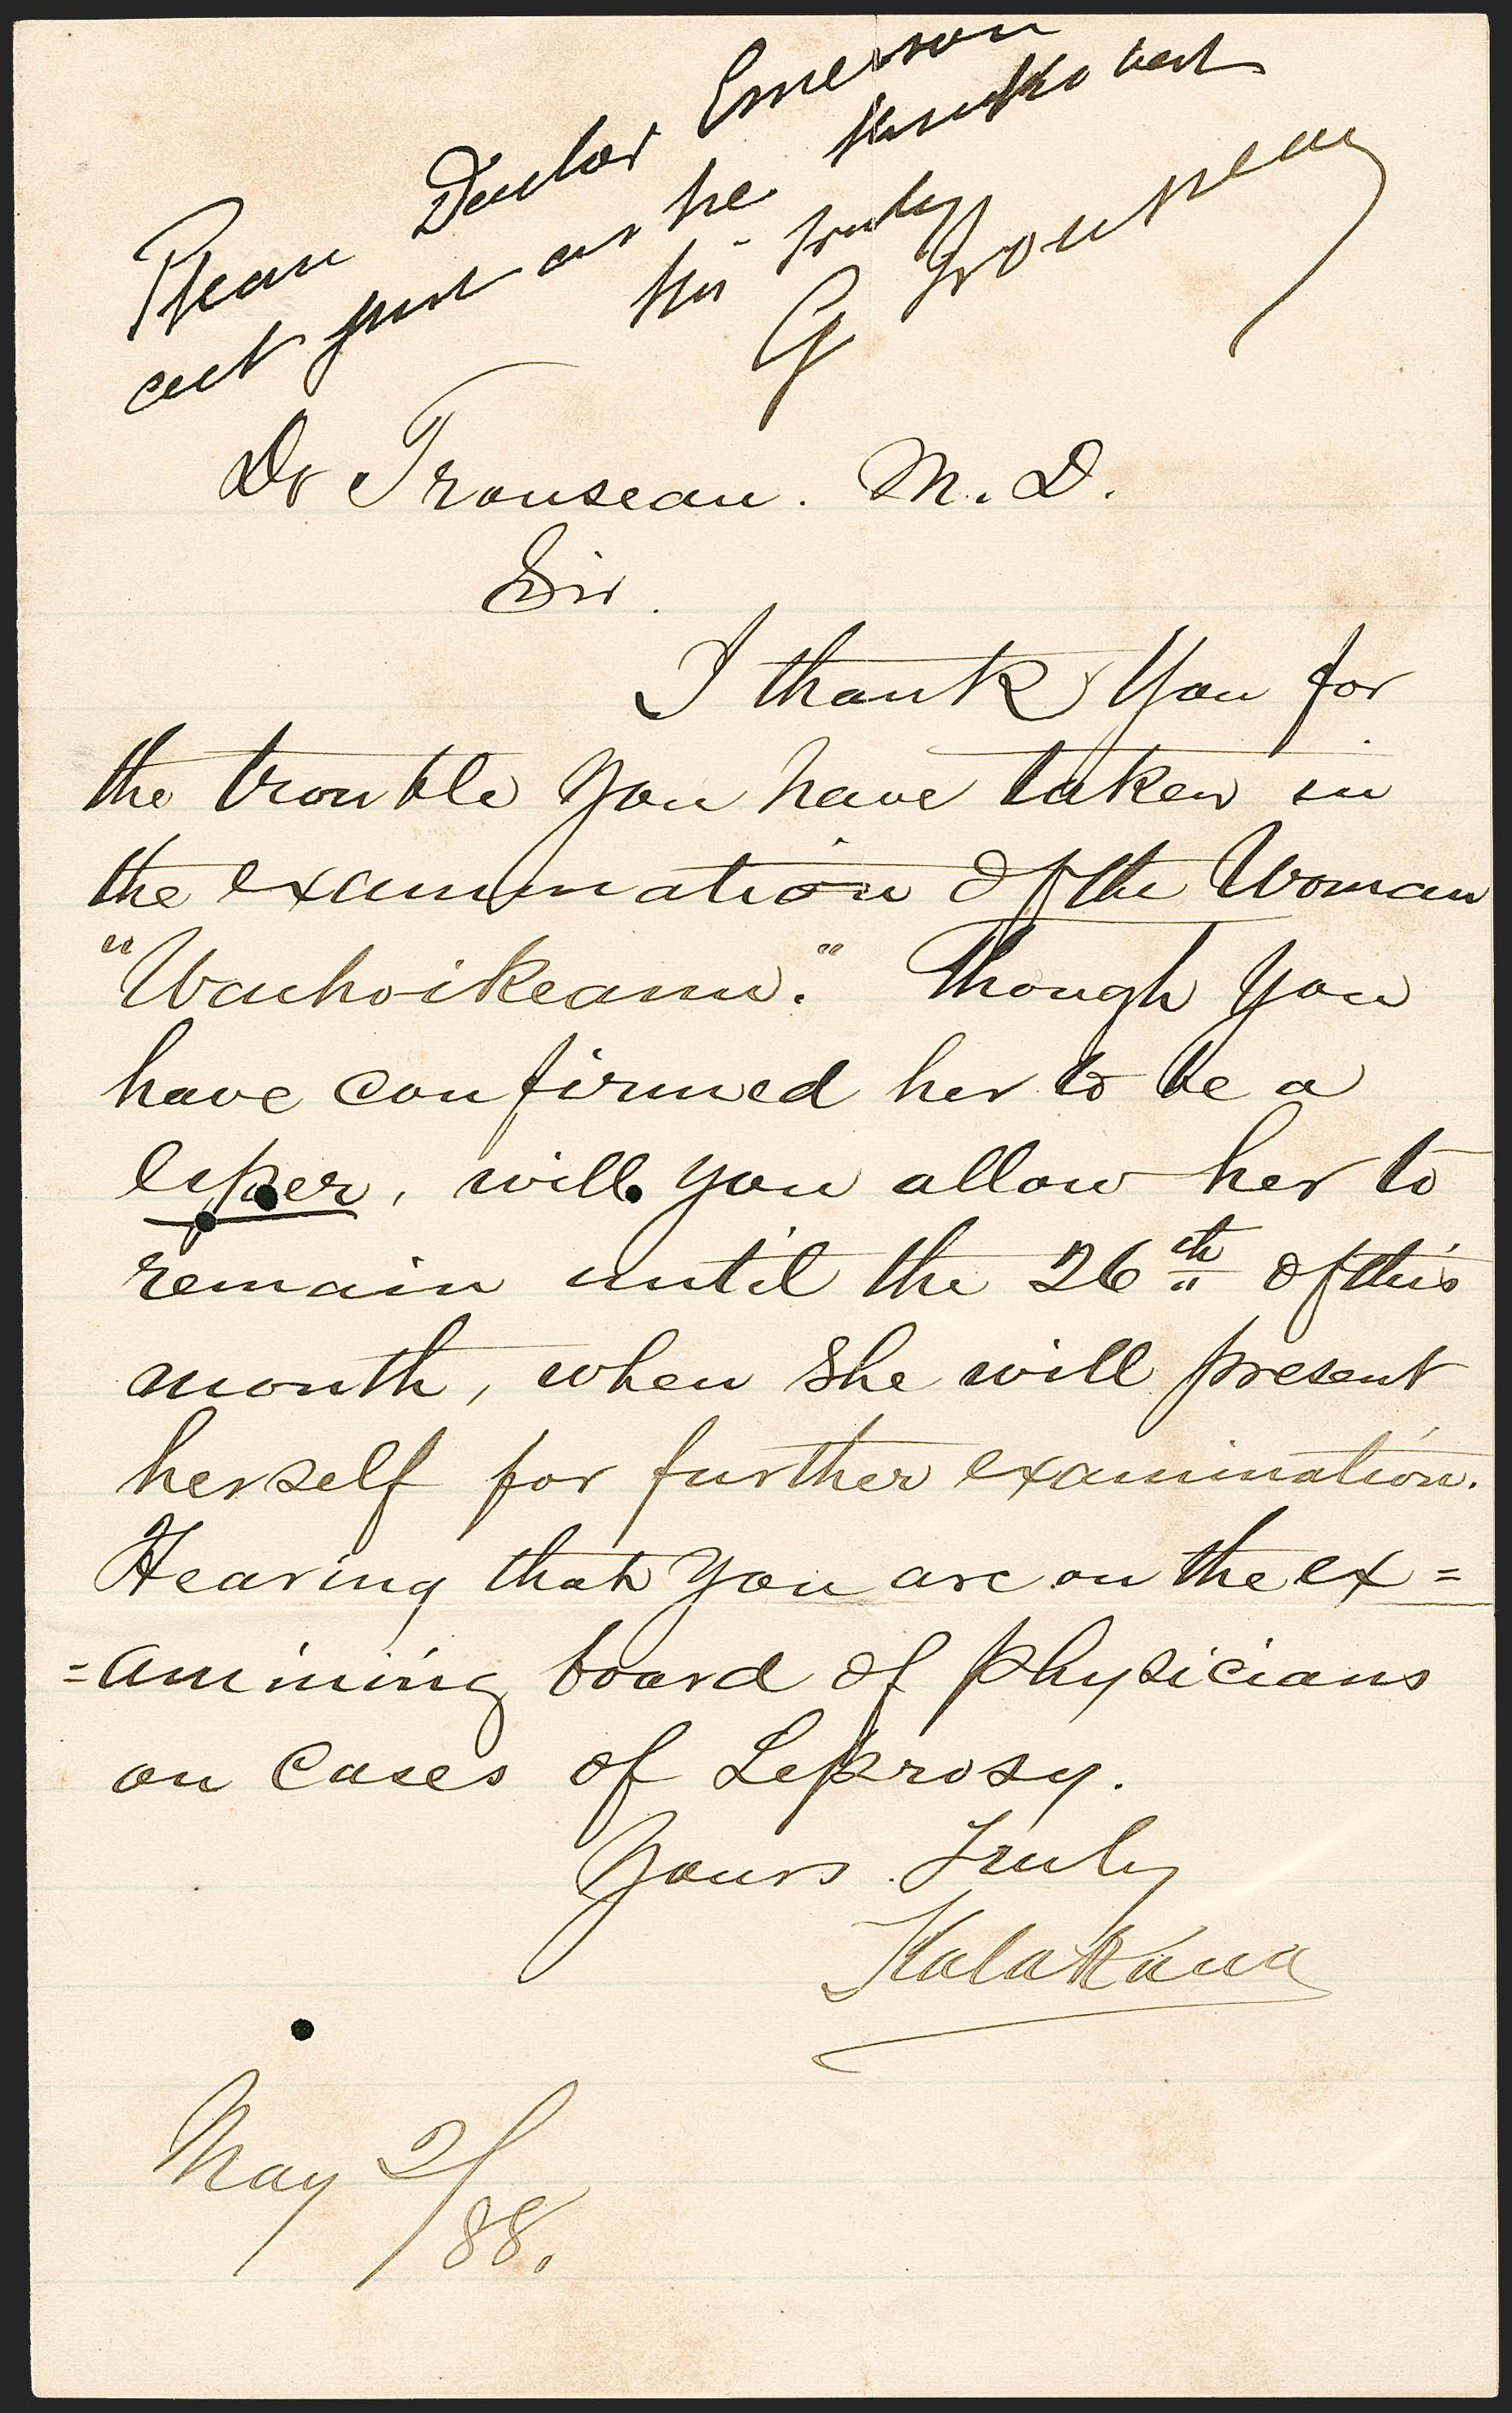 Please Doctor Emerson
act just as he thinks best
his truly
G Trousseau
Dr Trouseau. M. D.
Sir.
I thank You for
the trouble you have taken in
the examination of the Woman
"Wauhoikeanu." Though you
have confirmed her to be a
leper, will you allow her to
remain until the 26th of this
month, when She will present
herself for further examination.
Hearing that you are on the ex=
=amining board of physicians
on Cases of Leprosy.
Yours Truly
Kalakaua
May 2/88.